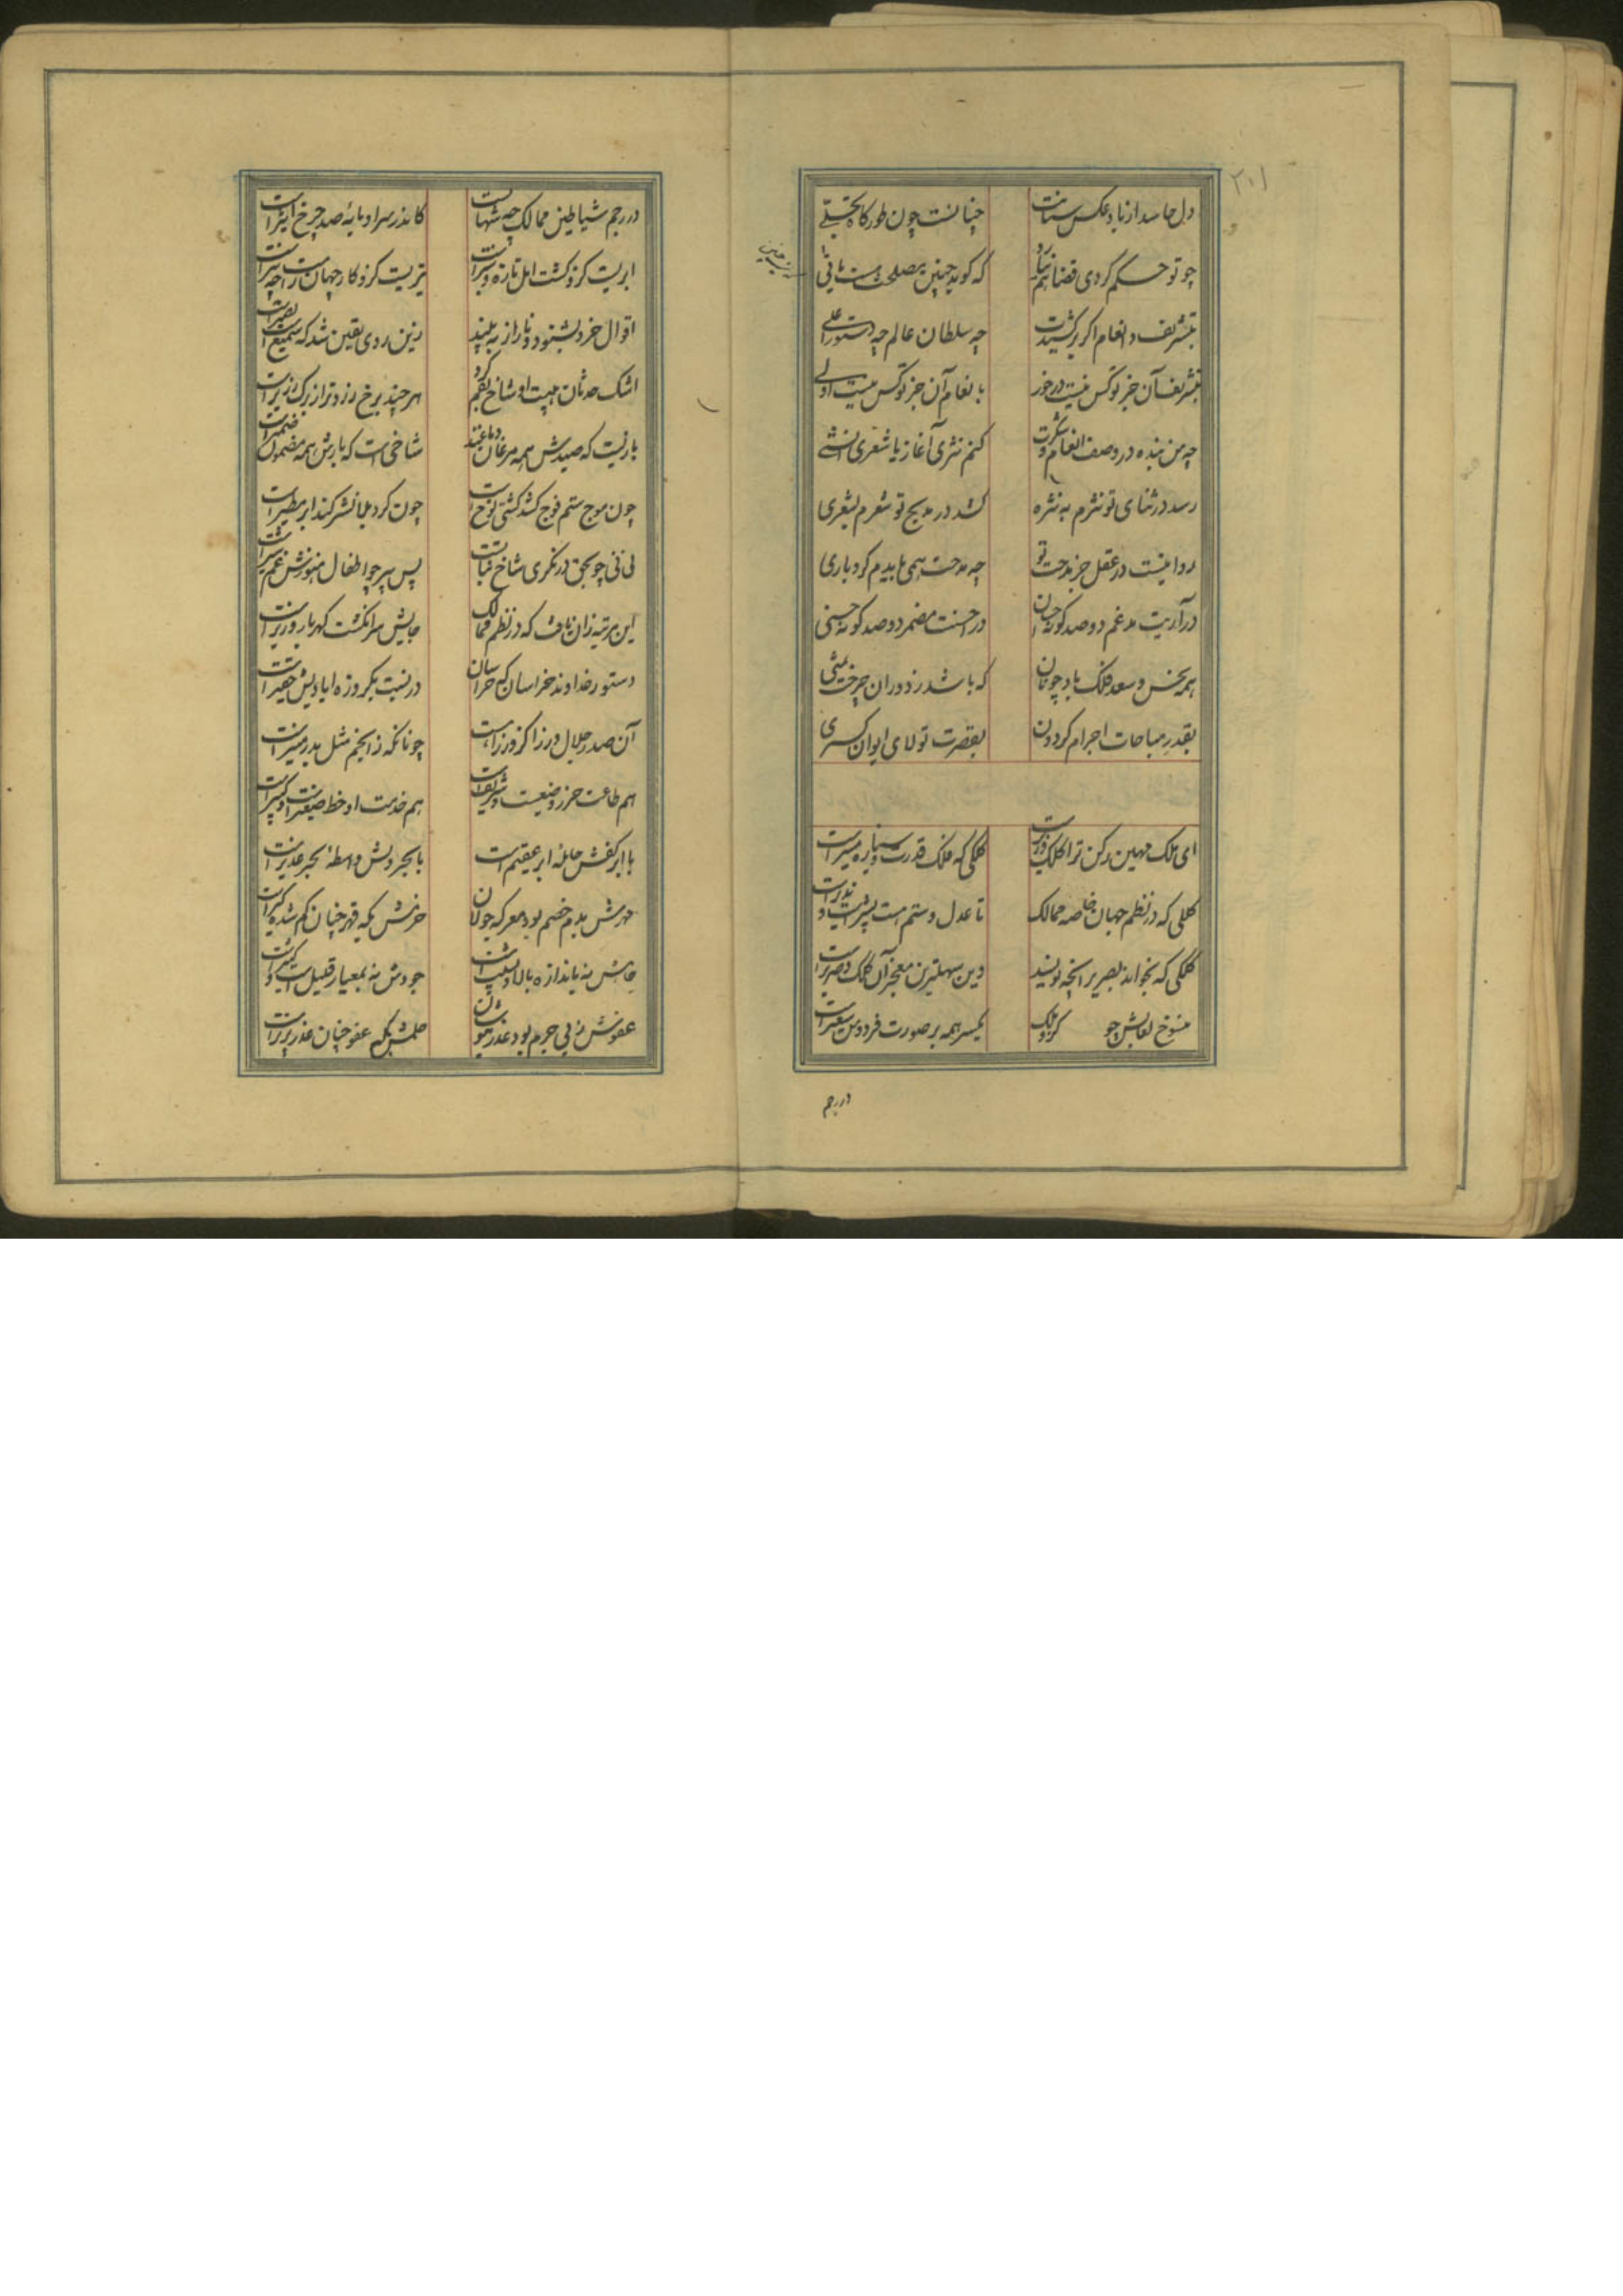 ۲۰۱
دل حاسد از باد عکس سنانت چنانست چون طور گاه تجلی
چو تو حکم کردی قضا هم نیارد که گوید چنین مصلحت هست یا نی
بتشریف و انعام اگر برکشیدت چه سلطان عالم چه دستور اعلی
بتشریف آن جز تو کس نیست در خور بانعام آن جز تو کس نیست اولی
چه من بنده در وصف انعام و شکرت کنم نثری آغاز یا شعری انشی
رسد در ثنای تو نثرم به نثره کشد در مدیح تو شعرم بشعری
روا نیست در عقل جز مدحت تو چه مدحت همی بایدم کرد باری
در آریت مدغم دو صد گونه احسان در احسنت مضمر دو صد گونه حسنی
همه نحس و سعد فلک باد چونان که باشد ز دوران چرخت تمنی
بقدرت مباهات اجرام گردون بقصرت تولای ایوان کسری
ای ملک مهین رکن ترا کلک وزیرست کلکی که فلک قدرت و سیاره مسیرست
کلکی که در نظم جهان خاصه ممالک تا عدل و ستم هست بشیرست و نذیرست
کلکی که بخواند بصریر آنچه نویسد وین سهلترین معجز آن کلک و صریرست
منسوخ لعابش چو کرد ملک یکسر همه بر صورت فردوس و سعیرست
در رجم
در رجم شیاطین ممالک چه شهابست کاندر سر او مایه صد چرخ اثیرست
ابریست کزو کشت امل تازه و سبزست تیریست کزو کار جهان راست چو تیرست
اقوال خرد بشنود و راز ببیند زین روی یقین شد که سمیع است بصیرست
اشک حدثان هیبت او شاخ بقم کرد هر چند برخ زردتر از برگ زریرست
بازیست که صیدش همه مرغان دماغند شاخیست که بارش همه مضمون ضمیرست
چون موج ستم فوج کشد کشتی نوح است چون گرد بلا نشر کند ابر مطیرست
نی نی چو بحق درنگری شاخ نباتست پس پیر چو اطفال هنوزش غم شیرست
این مرتبه زان یافت که در نظم ممالک جایش سر انگشت گهربار وزیرست
دستور خداوند خراسان که خراسان در نسبت یکروزه ایادیش حقیرست
آن صدر جلال وزرا کز وزرا هست چونانکه ز انجم مثل بدر منیرست
هم طاعت حرز وضیعست و شریفست هم خدمت او حظ صغیرست و کبیرست
با ابر کفش حامله ابر عقیم است با بحر دلش واسطه بحر غدیرست
مهرش بدم خصم بود معرکه جولان حزمش بگه قهر چنان گم شده گیرست
جاهش نه باندازه بالا و نشیب است جودش نه بمعیار قلیل است و کثیرست
عفوش ز پی جرم بود عذر نیوشان حلمش بگه عفو چنان عذر پذیرست